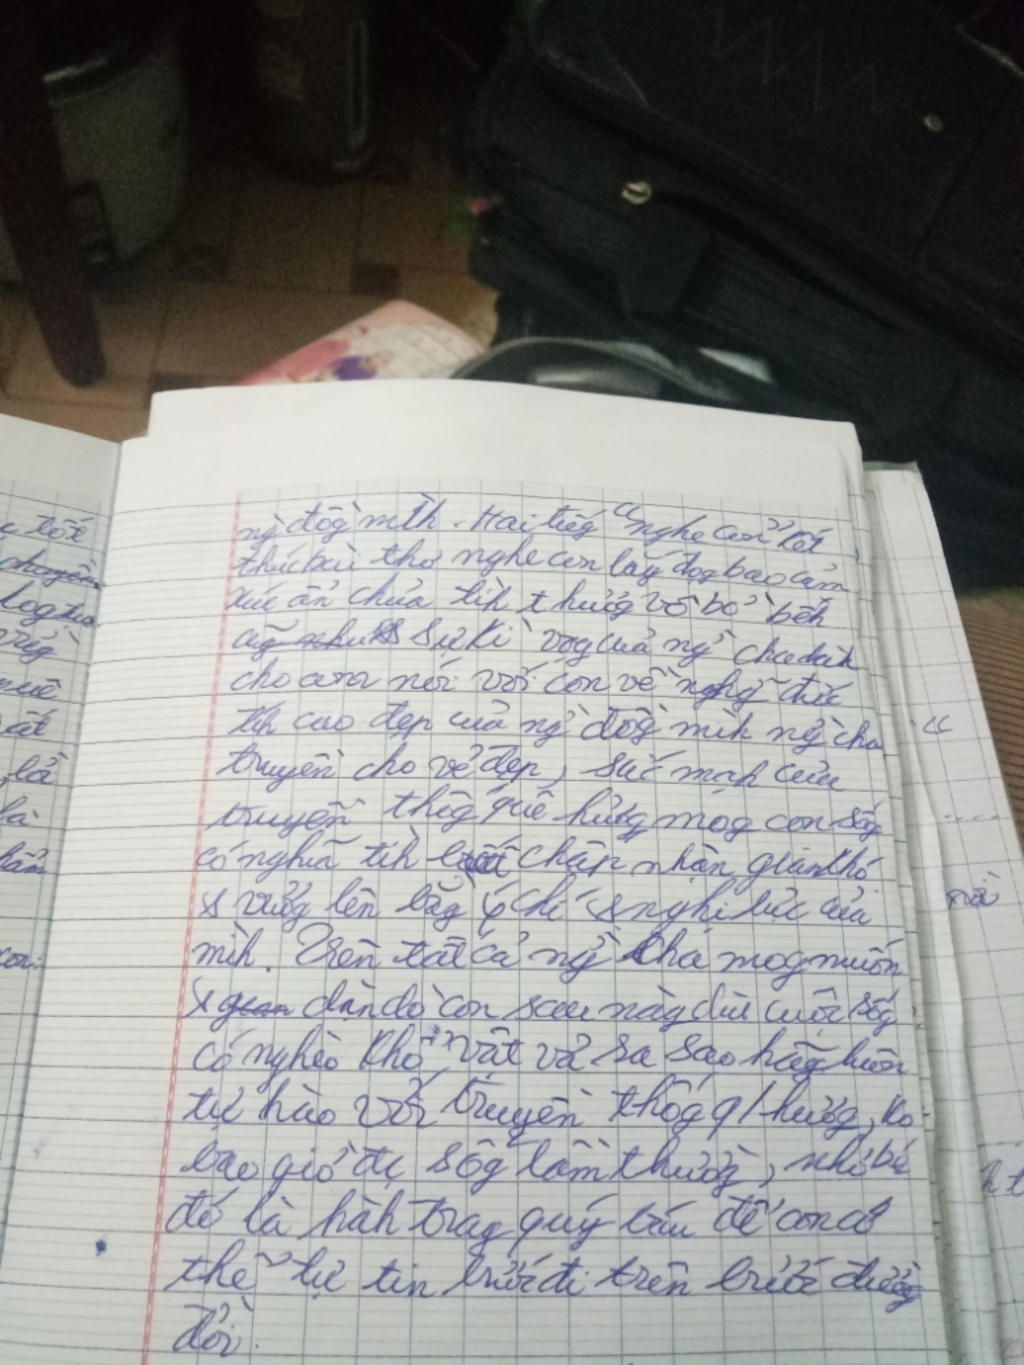 ng` đôg` mìh. Hai tiếg "nghe con" kết
thúc bài thơ nghe con lay độg bao cảm
xúc ẩn chứa tìh thươg vô bờ bến
cũg sự kì vọg của ng` cha dàh
cho con nói với con về nghĩ đức
tíh cao đẹp của ng` đôg` mìh ng` cha
truyền cho vẻ đẹp, sức mạh của
truyền thốg quê hươg mog con sốg
có nghĩa tìh chấp nhận gian khó
& vươg lên bằg ý chí & nghị lực của
mìh. Trên tất cả ng` cha mog muốn
& dặn dò con sau này dù cuộc sốg
có nghèo khổ, vất vả ra sao hãy luôn
tự hào với truyền thốg q/hươg, ko
bao giờ đc sốg tầm thườg, nhỏ bé
đó là hàh trag quý báu để con có
thể tự tin bước đi trên bước đườg
đời.